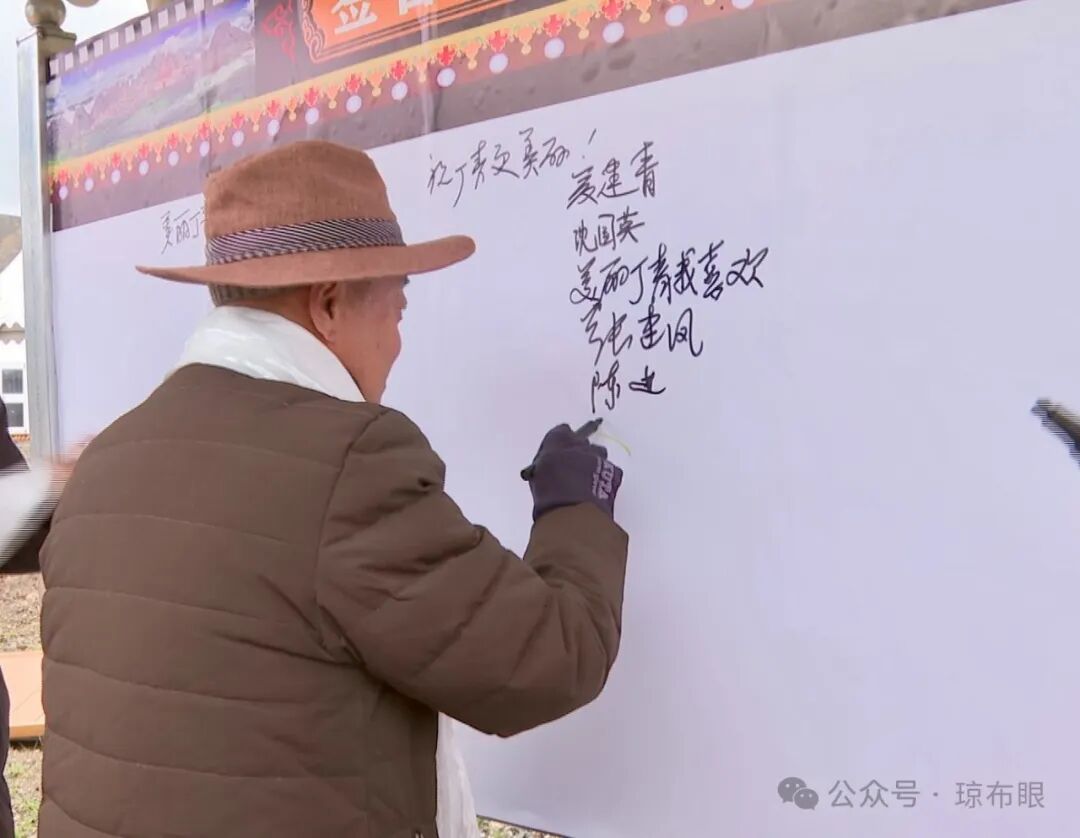 签名
美丽丁
祝丁青更美丽！
夏建青
沈国英
美丽丁青我喜欢
张建风
陈
KUTA
公众号 · 琼布眼